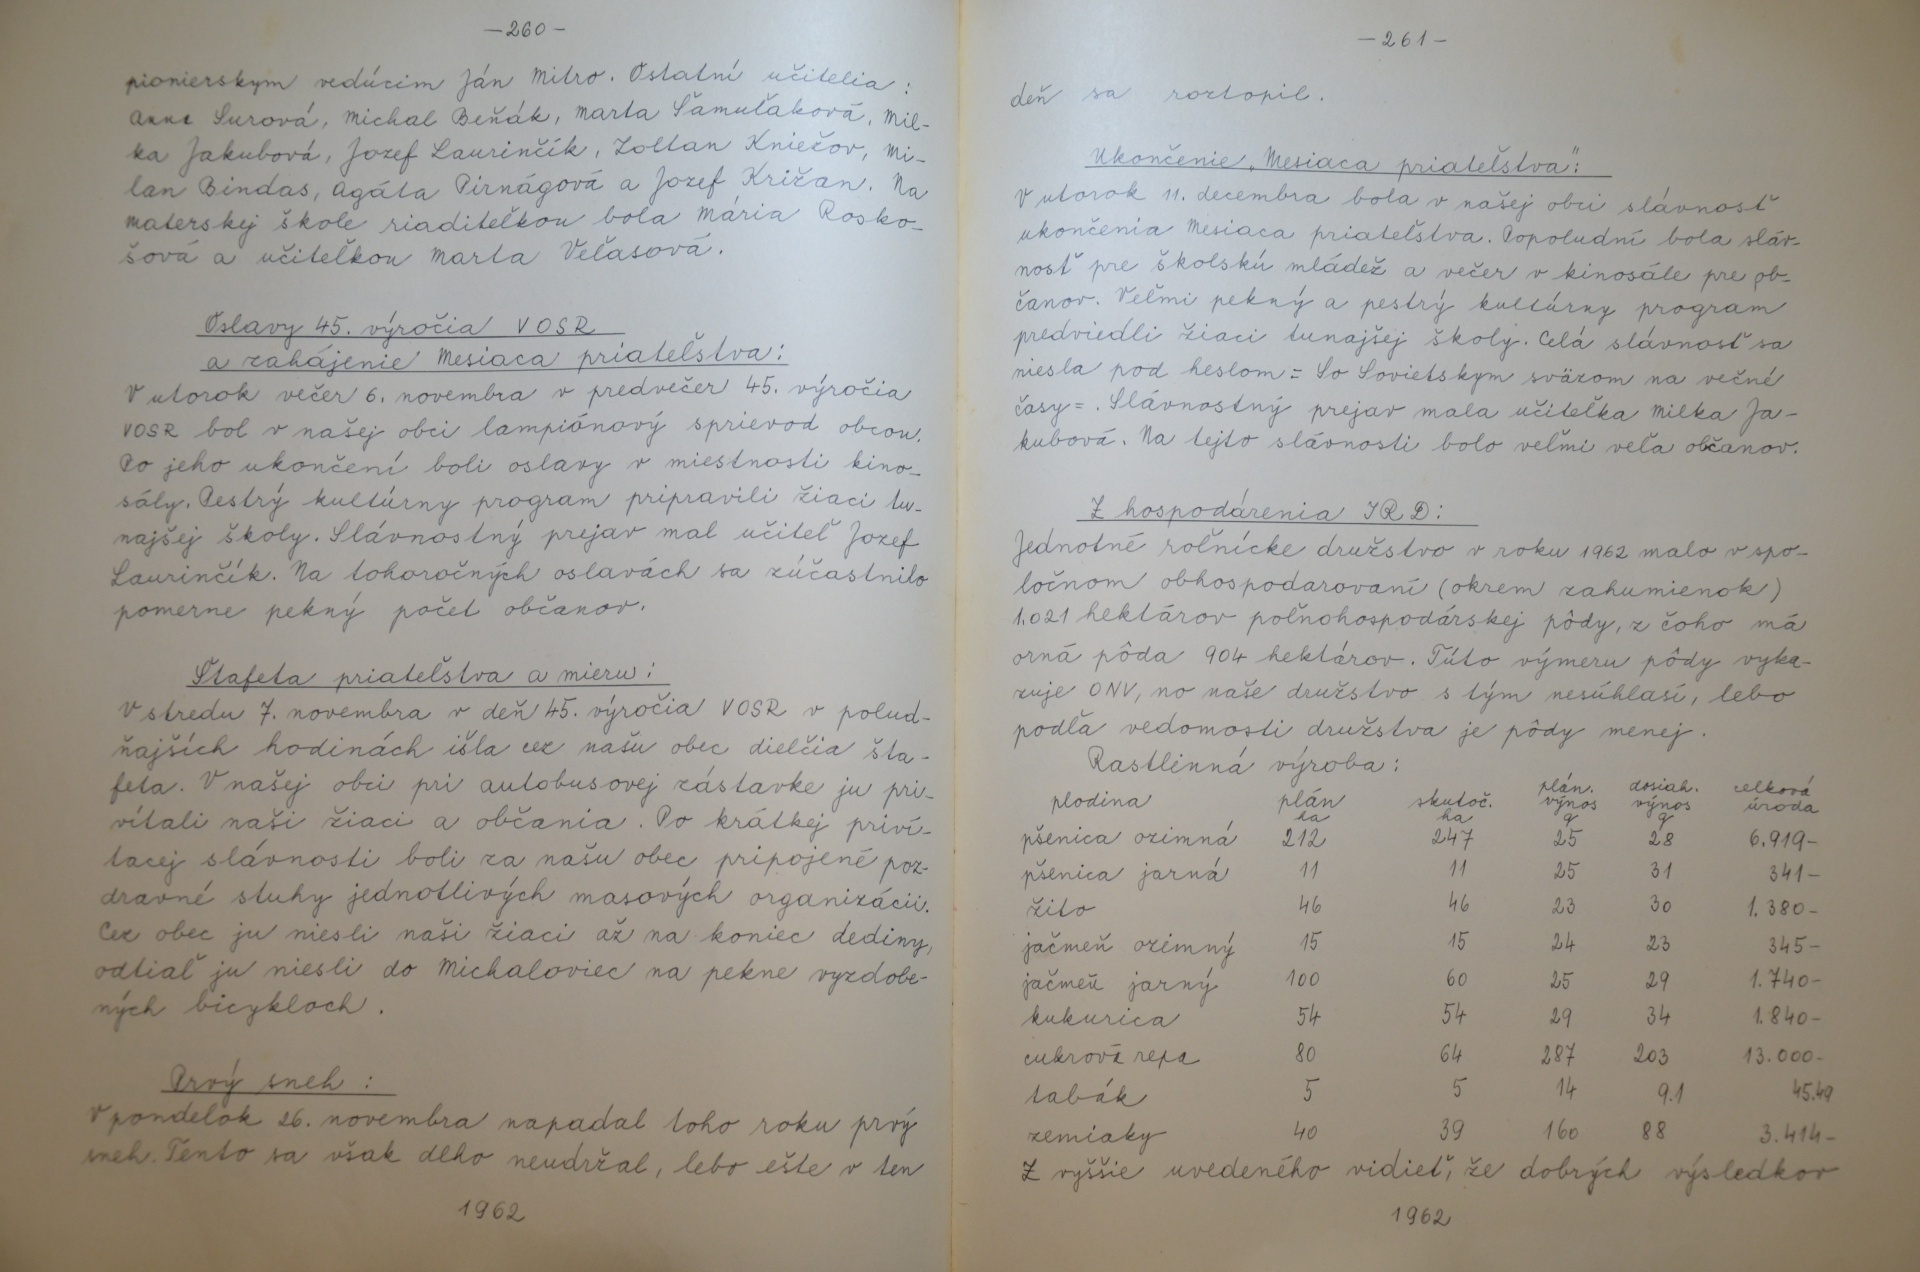 —260—
pionierskym vedúcim Ján Mitro. Ostatní učitelia :
Anna Surová, Michal Beňák, Marta Šamuľaková, Mil-
ka Jakubová, Jozef Laurinčík, Zoltan Kniežov, Mi-
lan Bindas, Agáta Pirnágová a Jozef Križan. Na
materskej škole riaditeľkou bola Mária Rosko-
šová a učiteľkou Marta Veľasová.
Oslavy 45. výročia VOSR
a zahájenie Mesiaca priateľstva:
V utorok večer 6. novembra v predvečer 45. výročia
VOSR bol v našej obci lampiónový sprievod obcou.
Po jeho ukončení boli oslavy v miestnosti kino-
sály. Pestrý kultúrny program pripravili žiaci tu-
najšej školy. Slávnostný prejav mal učiteľ Jozef
Laurinčík. Na tohoročných oslavách sa zúčastnilo
pomerne pekný počet občanov.
Štafeta priateľstva a mieru:
V stredu 7. novembra v deň 45. výročia VOSR v polud-
ňajších hodinách išla cez našu obec dielčia šta-
feta. V našej obci pri autobusovej zástavke ju pri-
vítali naši žiaci a občania. Po krátkej priví-
tacej slávnosti boli za našu obec pripojené poz-
dravné stuhy jednotlivých masových organizácii.
Cez obec ju niesli naši žiaci až na koniec dediny,
odtiaľ ju niesli do Michaloviec na pekne vyzdobe-
ných bicykloch.
Prvý sneh :
V pondelok 26. novembra napadal toho roku prvý
sneh. Tento sa však dlho neudržal, lebo ešte v ten
1962
—261—
deň sa roztopil.
Ukončenie „Mesiaca priateľstva":
V utorok 11. decembra bola v našej obci slávnosť
ukončenia Mesiaca priateľstva. Popoludní bola sláv-
nosť pre školskú mládež a večer v kinosále pre ob-
čanov. Veľmi pekný a pestrý kultúrny program
predviedli žiaci tunajšej školy. Celá slávnosť sa
niesla pod heslom = So Sovietskym sväzom na večné
časy =. Slávnostný prejav mala učiteľka Milka Ja-
kubová. Na tejto slávnosti bolo veľmi veľa občanov.
Z hospodárenia JRD:
Jednotné roľnícke družstvo v roku 1962 malo v spo-
ločnom obhospodarovaní (okrem zahumienok)
1.021 hektárov poľnohospodárskej pôdy, z čoho má
orná pôda 904 hektárov. Túto výmeru pôdy vyka-
zuje ONV, no naše družstvo s tým nesúhlasí, lebo
podľa vedomosti družstva je pôdy menej.
Rastlinná výroba:
plodina plán ha skutoč. ha plán. výnos q dosiah. výnos q celková úroda
pšenica ozimná 212 247 25 28 6.919-
pšenica jarná 11 11 25 31 341-
žito 46 46 23 30 1.380-
jačmeň ozimný 15 15 24 23 345-
jačmeň jarný 100 60 25 29 1.740-
kukurica 54 54 29 34 1.840-
cukrová repa 80 64 287 203 13.000-
tabák 5 5 14 9.1 45.49
zemiaky 40 39 160 88 3.414-
Z vyššie uvedeného vidieť, že dobrých výsledkov
1962